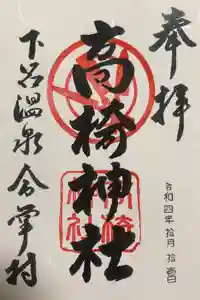 奉拝
令和四年拾月拾壱日
高椅神社
下呂温泉合掌村